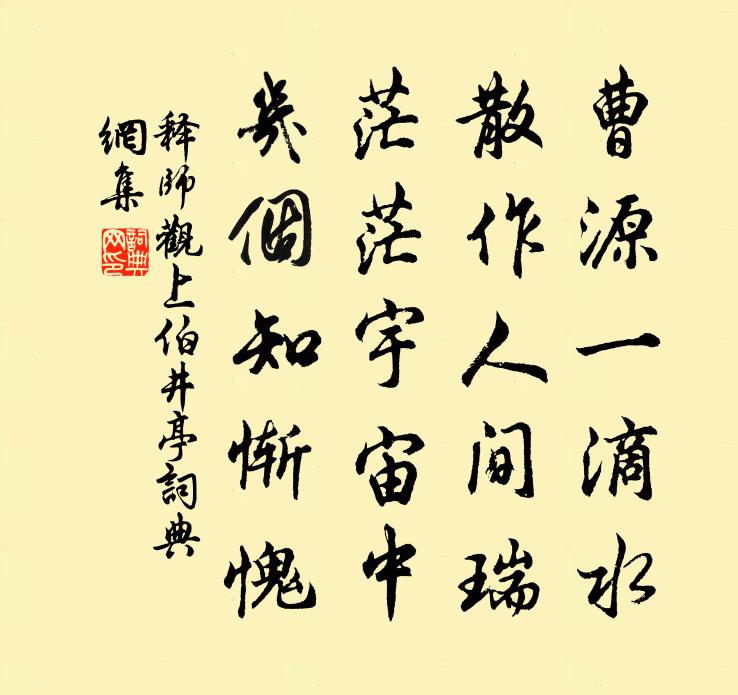 曹源一滴水
散作人间瑞
茫茫宇宙中
几個知慚愧
释師觀上伯井亭詞典
網集
詞典
网印